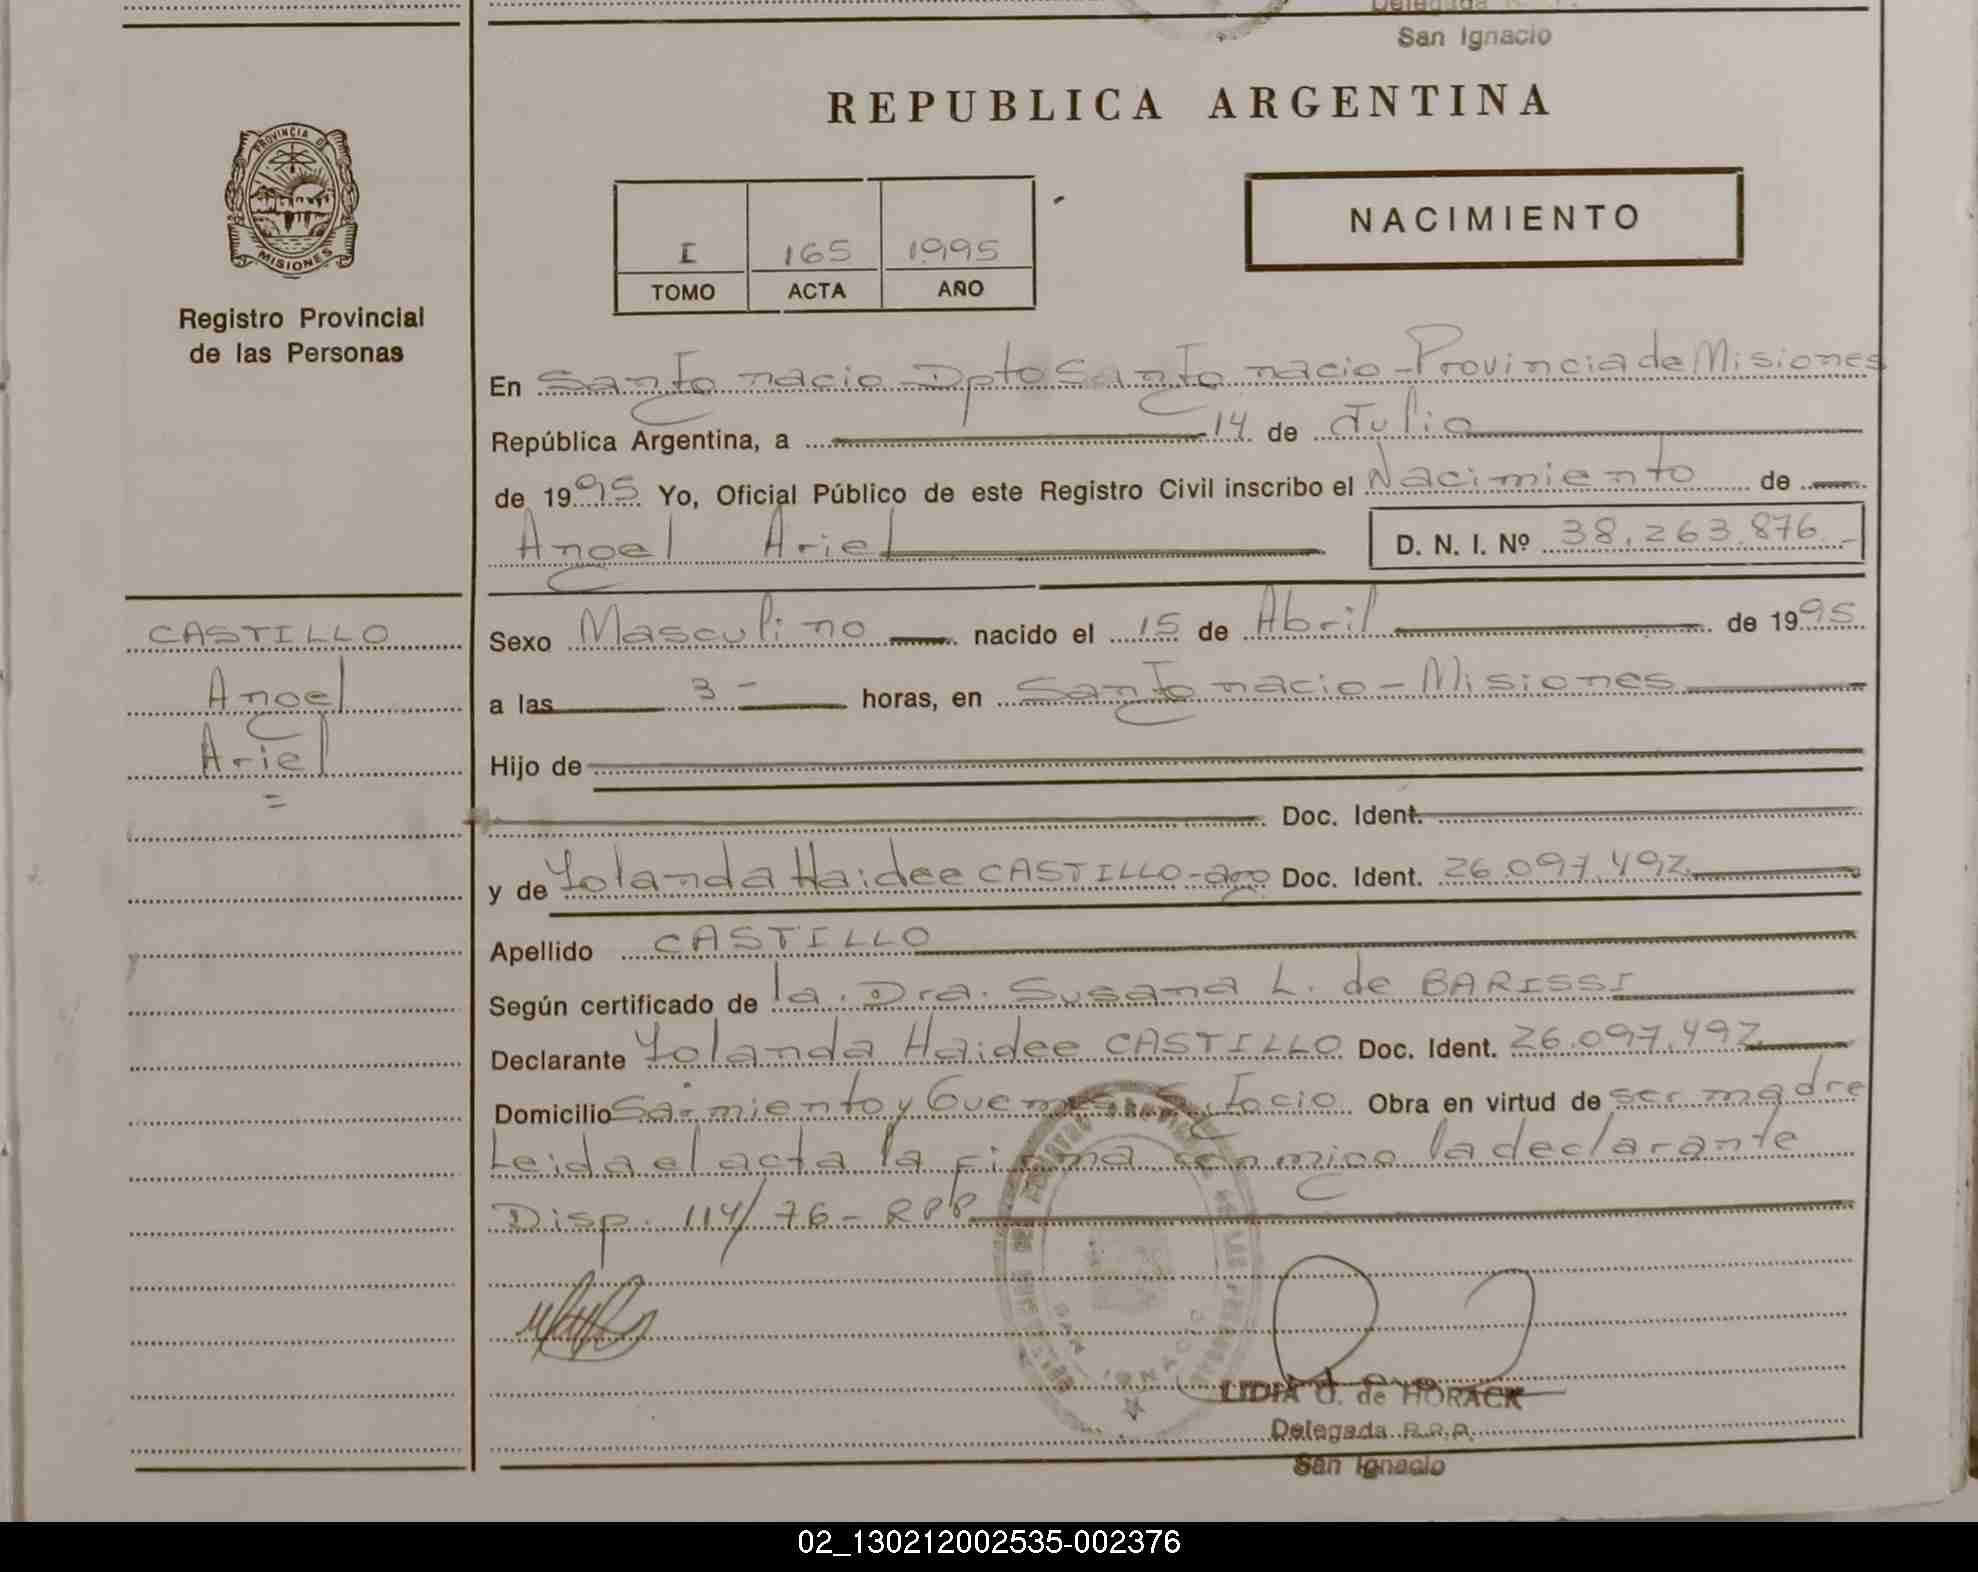 San Ignacio
REPUBLICA ARGENTINA
PROVINCIA DE
MISIONES
Registro Provincial
de las Personas
NACIMIENTO
I 165 1995
TOMO ACTA AÑO
En San Ignacio Dpto San Ignacio - Provincia de Misiones
República Argentina, a 14 de Julio
de 1995 Yo, Oficial Público de este Registro Civil inscribo el Nacimiento de
Angel Ariel D. N. I. Nº 38.263.876
CASTILLO
Angel
Ariel
Sexo Masculino nacido el 15 de Abril de 1995
a las 3 - horas, en San Ignacio - Misiones
Hijo de
Doc. Ident.
y de Yolanda Haidee CASTILLO - arg Doc. Ident. 26.097.492
Apellido CASTILLO
Según certificado de la Dra. Susana L. de BARISSI
Declarante Yolanda Haidee CASTILLO Doc. Ident. 26.097.492
Domicilio Sarmiento y Guemes Obra en virtud de ser madre
Leida el acta la firma conmigo la declarante
Disp. 114/76 - RPP
SAN IGNACIO
LIDIA U. de HORACK
Delegada R.P.P.
San Ignacio
02_130212002535-002376